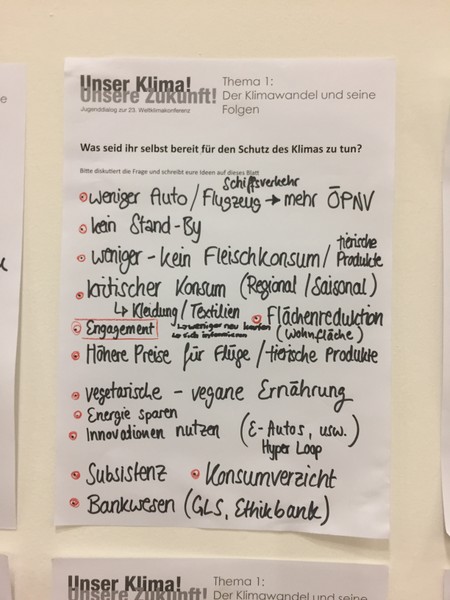 Unser Klima!
Unsere Zukunft!
Jugenddialog zur 23. Weltklimakonferenz
Thema 1:
Der Klimawandel und seine
Folgen
Was seid ihr selbst bereit für den Schutz des Klimas zu tun?
Bitte diskutiert die Frage und schreibt eure Ideen auf dieses Blatt
Schiffsverkehr
weniger Auto / Flugzeug → mehr ÖPNV
kein Stand-By
weniger - kein Fleischkonsum / tierische Produkte
kritischer Konsum (Regional / Saisonal)
↳ Kleidung / Textilien
Flächenreduktion
(Wohnfläche)
Engagement
↳ weniger neu kaufen
↳ sich informieren
Höhere Preise für Flüge / tierische Produkte
vegetarische - vegane Ernährung
Energie sparen
Innovationen nutzen (E-Autos, usw.)
Hyper Loop
Subsistenz
Konsumverzicht
Bankwesen (GLS, Ethikbank)
Unser Klima!
Thema 1:
Der Klimawandel und seine